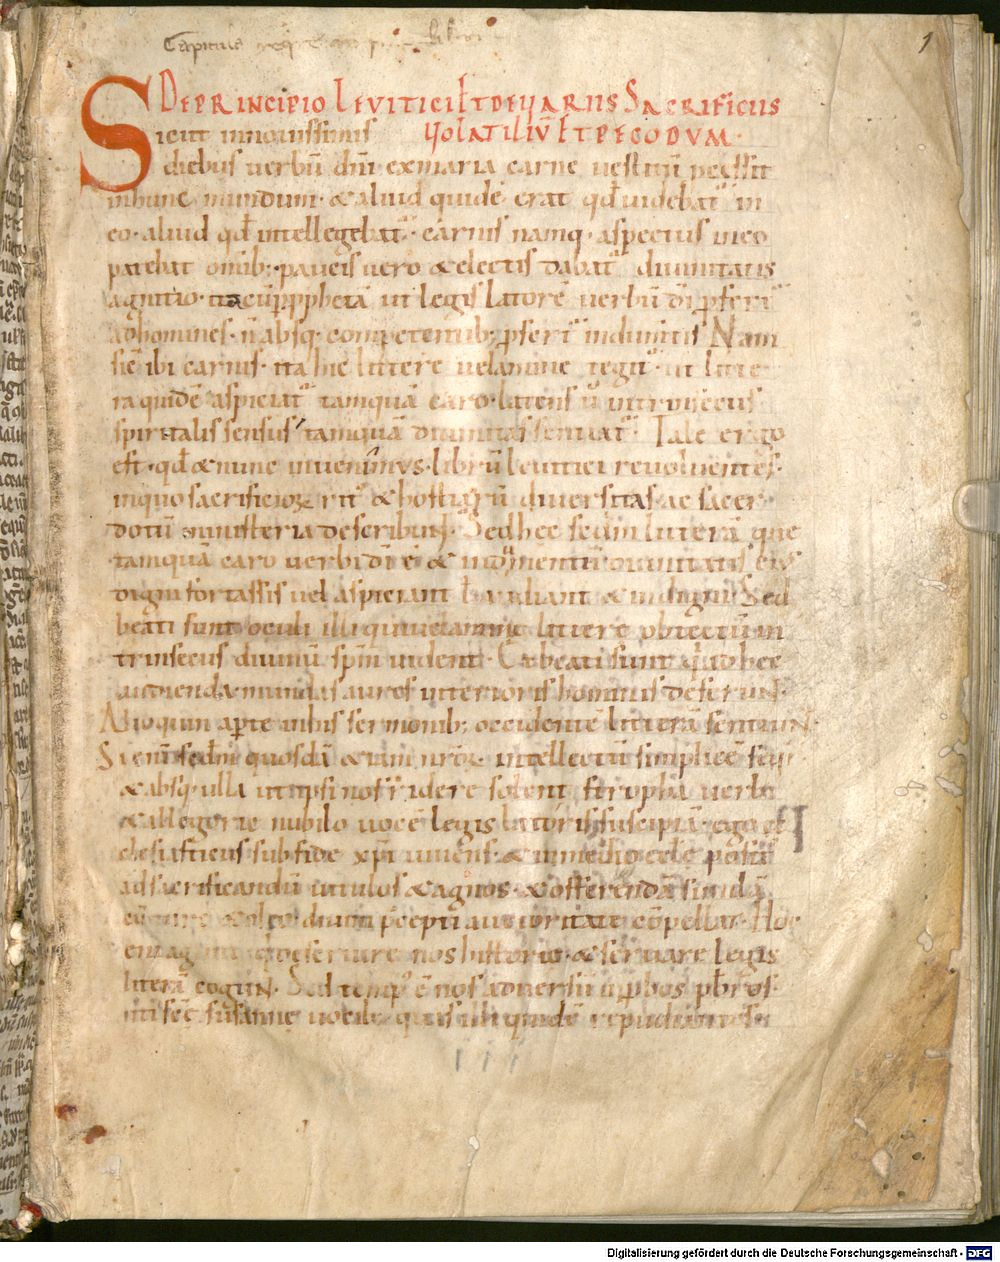 Capitula require
1
DE PRINCIPIO LEVITICI ET DE VARIIS SACRIFICIIS
VOLATILIŪ ET PECODVM·
Sicut innouissimis
diebus uerbū dñi exmaria carne uestitū pcessit
inhunc mundum· & aliud quidē erat qđ uidebat in
eo· aliud qđ intellegebat· carnis namq· aspectus ineo
patebat omib;· paucis uero & electis dabat diuinitatis
agnitio· ita cū p pphetā ut legis latorē uerbū dī pferi
adhomines· ñ absq· competentib; pferi indumtis Nam
sic ibi carnis· ita hic littere uelamine tegit· ut litte
ra quidē aspiciat tamquā caro· latens ū intrinsecus
spiritalis sensus tamquā diuinitas sentiat· Tale ergo
est· qđ & nunc inuenimus· librū leuitici reuoluentes·
inquo sacrificioꝝ rit & hostiarū diuersitas ac sacer
dotū ministeria describunt· Sedhec scdm litterā que
tamquā caro uerbi dī ē & indumentū diuinitatis eius
digni fortassis uel aspiciant ł audiant & indigni· Sed
beati sunt oculi illi qui uelamine littere obtectū in
trinsecus diuinū spm uident· Et beati sunt qui adhec
audienda mundas aures interioris hominis deferunt·
Alioquin apte inhis sermonib; occidentē litterā sentiunt·
Si enī scdm quosdā &iam nroꝝ intellectū simplicē sequi
& absq· ulla ut ipsi nostri dere solent stropha uerbi
& allegorie nubilo uocē legis latoris suscipiā· ego ec
clesiasticus sub fide xpi uiuens· & inmedio eccle positus
ad sacrificandū uitulos & agnos· & offerendā similā
cū ture & oleo diuini pcepti auctoritate cōpellar· Hoc
enī agunt qui deseruire nos historie & seruare legis
litterā cogunt· Sed temp ē nos aduersū inprobos pbros·
uti scē susanne uocib; quas illi quidē repudiantes·
III
Digitalisierung gefördert durch die Deutsche Forschungsgemeinschaft - DFG